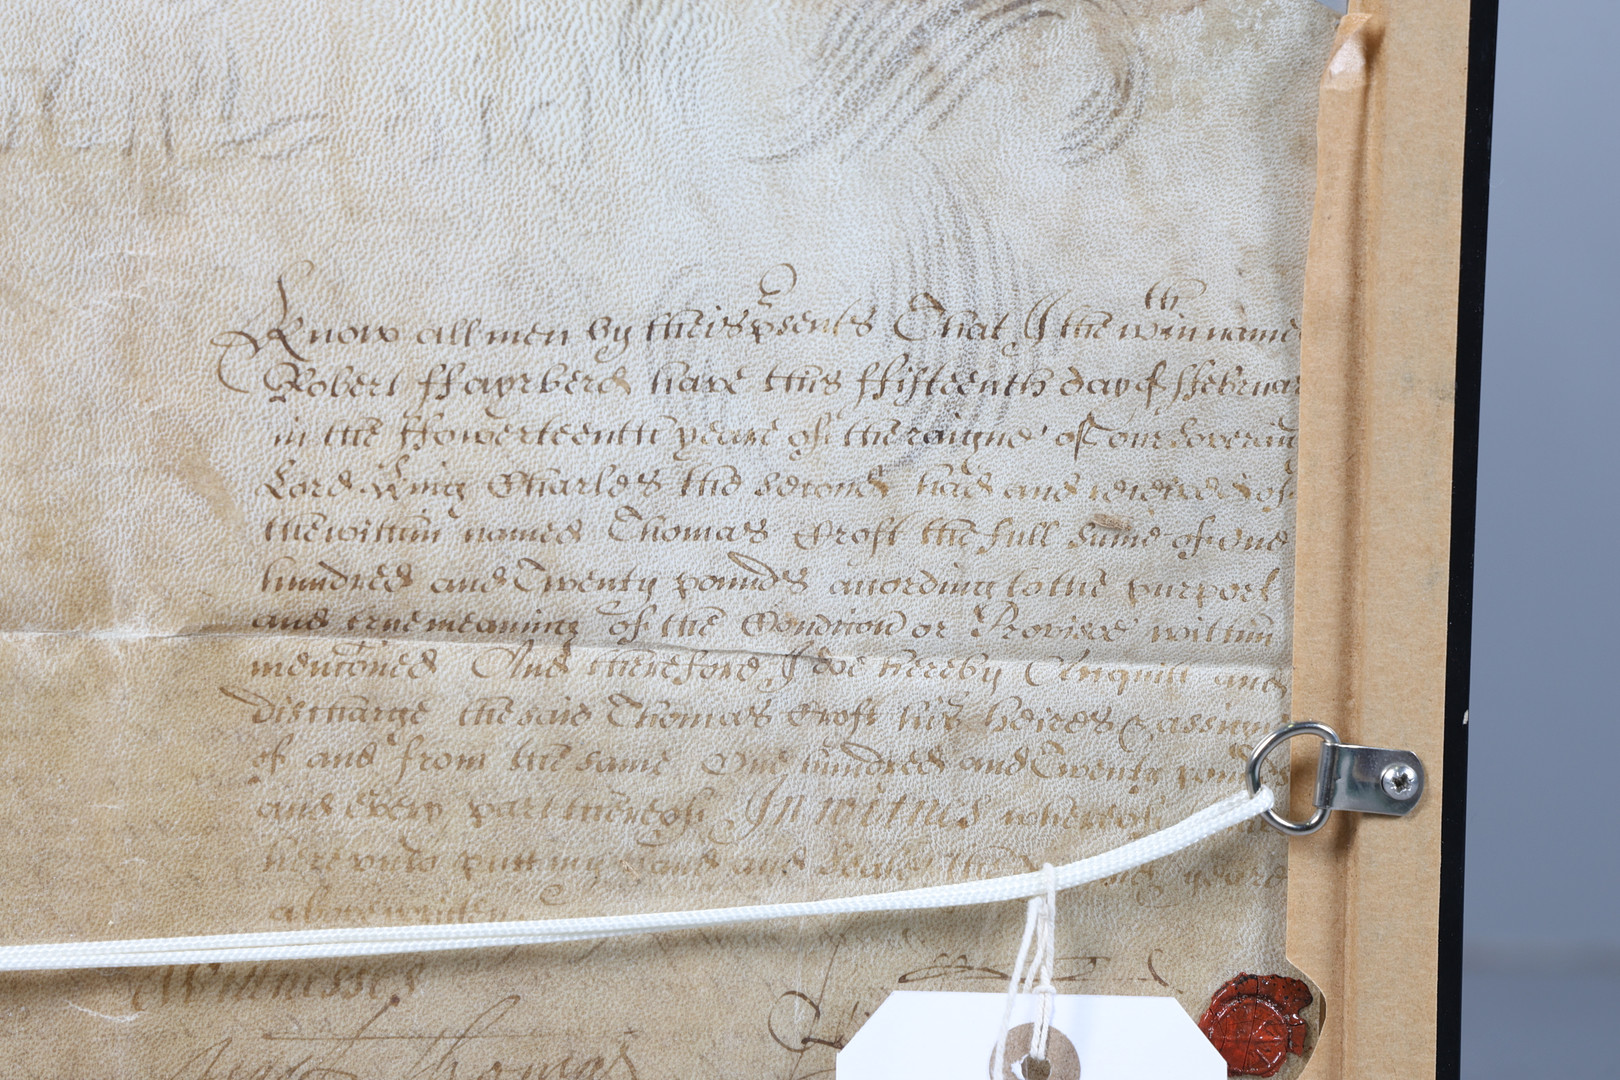 Know all men by theis psents That I the wthin name
Robert ffayrberd have this ffifteenth day of ffebruar
in the ffowerteenth yeare of the raigne of our soveraig
Lord King Charles the second had and receved of
the within named Thomas Croft the full sume of one
hundred and Twenty pounds according to the purport
and true meaning of the Condicion or Provisoe within
mencioned And therefore I doe hereby Acquitt and
discharge the said Thomas Croft his heires & assigns
of and from the same One hundred and Twenty pounds
and every part thereof In witnes whereof
hereunto putt my hand and seale the yeare
above written
Witnesses
Thomas